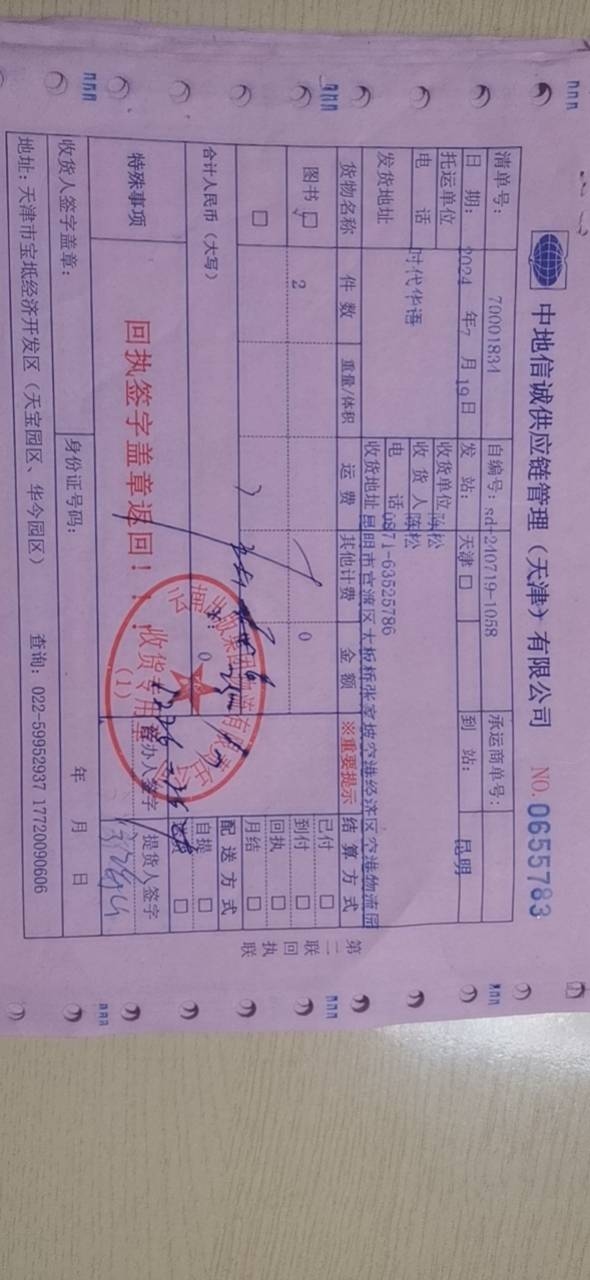 中地信诚供应链管理（天津）有限公司 NO. 0655783
清单号： 70001834 自编号：sd-240719-1058 承运商单号：
日 期： 2024 年7 月 19 日 发 站： 天津 □ 到 站： 昆明
托运单位 时代华语 收货单位 陈松
电 话 收 货 人 陈松
电 话 0871-63525786
发货地址 收货地址 昆明市官渡区大板桥张家坡空港经济区空港物流园
货物名称 件 数 重量/体积 运 费 其他计费 金 额 ※重要提示 结 算 方 式
图书 □ 2 0 已付 □
到付 □
□ 回执 □
月结 □
合计人民币（大写） ¥: 0 配 送 方 式
自提 □
□
特殊事项 回执签字盖章返回！！！ 经办人签字 提货人签字
收货专用章
(1)
收货人签字盖章： 身份证号码： 年 月 日
地址：天津市宝坻经济开发区（天宝园区、华今园区） 查询：022-59952937 17720090606
第二联 回执联